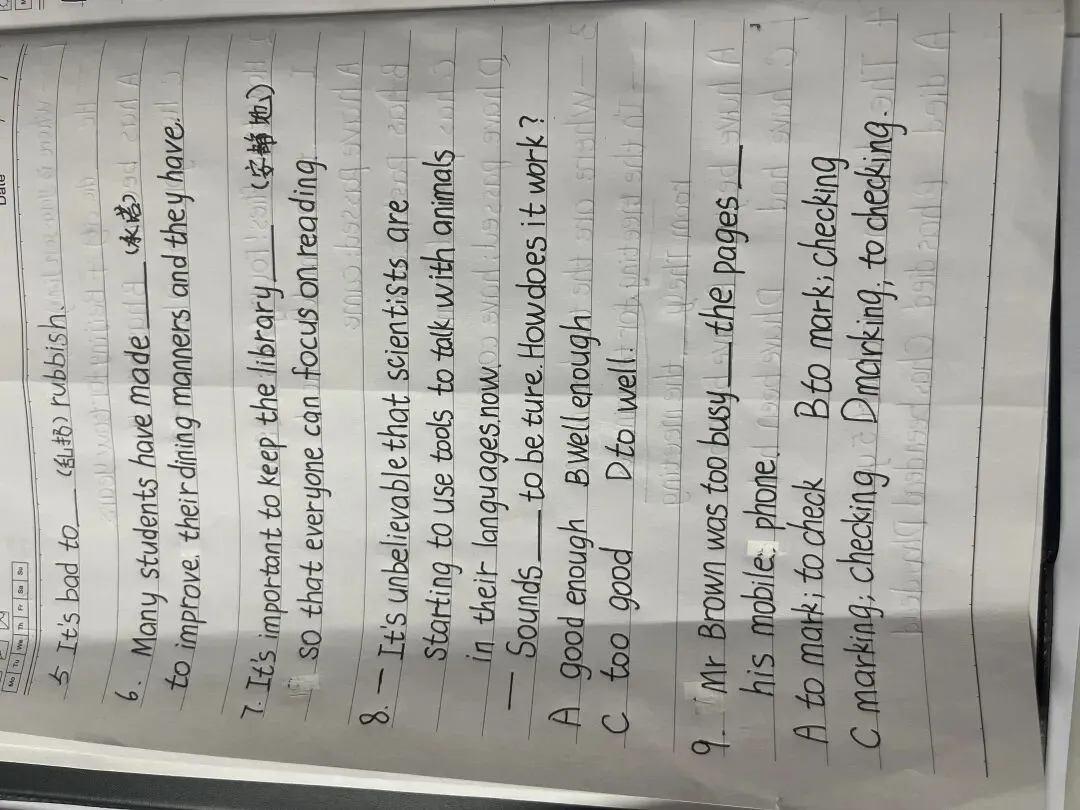 Date
Mo Tu We Th Fr Sa Su
5 It's bad to ___ (乱扔) rubbish.
6. Many students have made ___ (承诺)
to improve. their dining manners and they have.
7. It's important to keep the library ___ (安静地)
so that everyone can focus on reading
8. — It's unbelievable that scientists are
Starting to use tools to talk with animals
in their langyages now
— Sounds ___ to be ture. How does it work?
A good enough B Well enough
C too good D to well.
9. Mr Brown was too busy ___ the pages ___
his mobile phone.
A to mark; to check B to mark; checking
C marking; checking D marking; to checking.